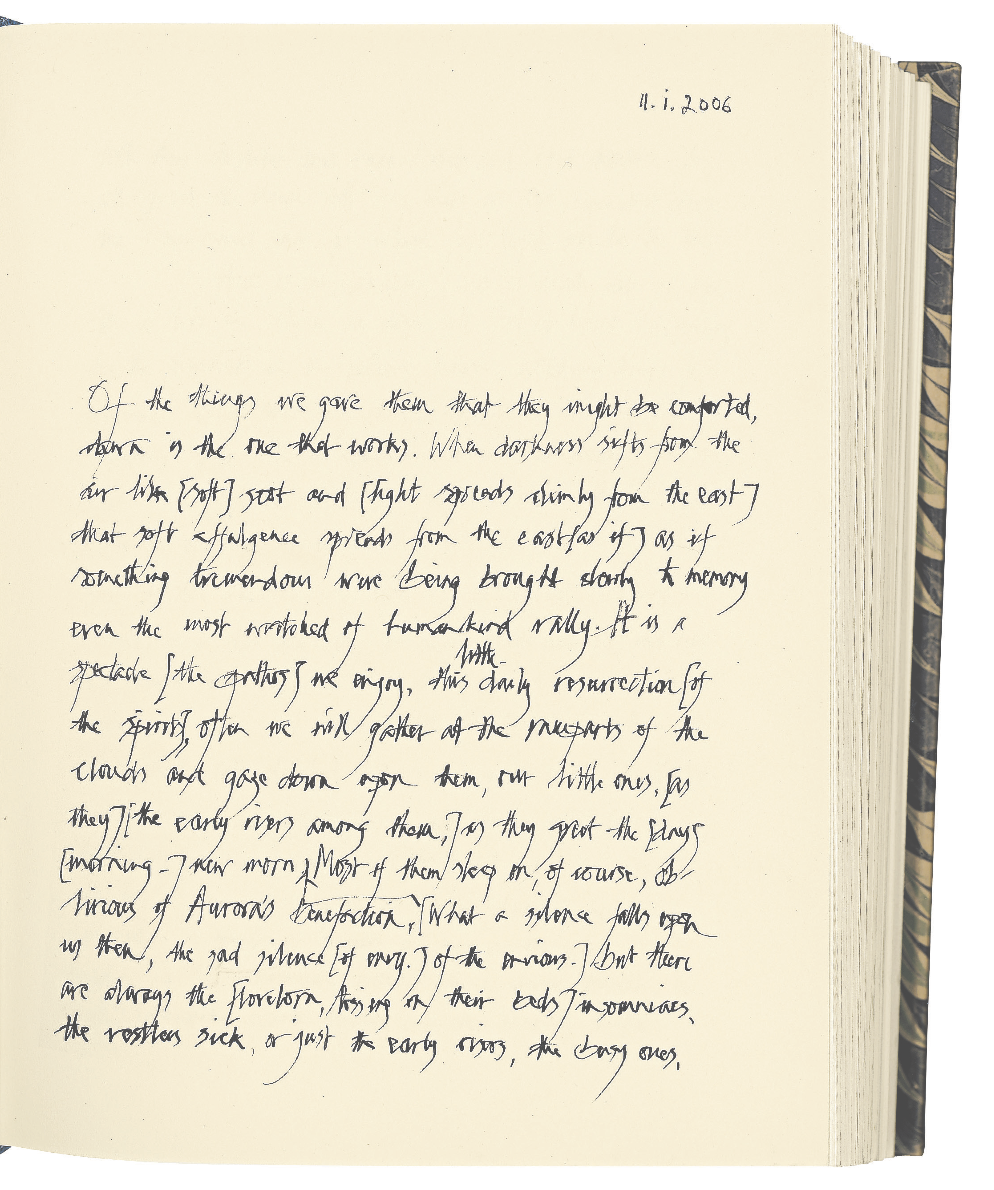 11.i.2006
Of the things we gave them that they might be comforted,
dawn is the one that works. When darkness sifts from the
air like [soft] soot and [light spreads slimly from the east]
that soft effulgence spreads from the east [as if] as if
something tremendous were being brought slowly to memory
even the most wretched of humankind rally. It is a
spectacle [the pathos] we enjoy, this little daily resurrection [of
the spirits], often we will gather at the ramparts of the
clouds and gaze down upon them, our little ones, [as
they] [the early risers among them,] as they greet the [day,
[morning –] new morn. Most of them sleep on, of course, ob-
livious of Aurora's benefaction, [What a silence falls upon
us then, the sad silence [of envy.] of the envious.] but there
are always the [lovelorn, tossing on their beds] insomniacs,
the restless sick, or just the early risers, the busy ones,